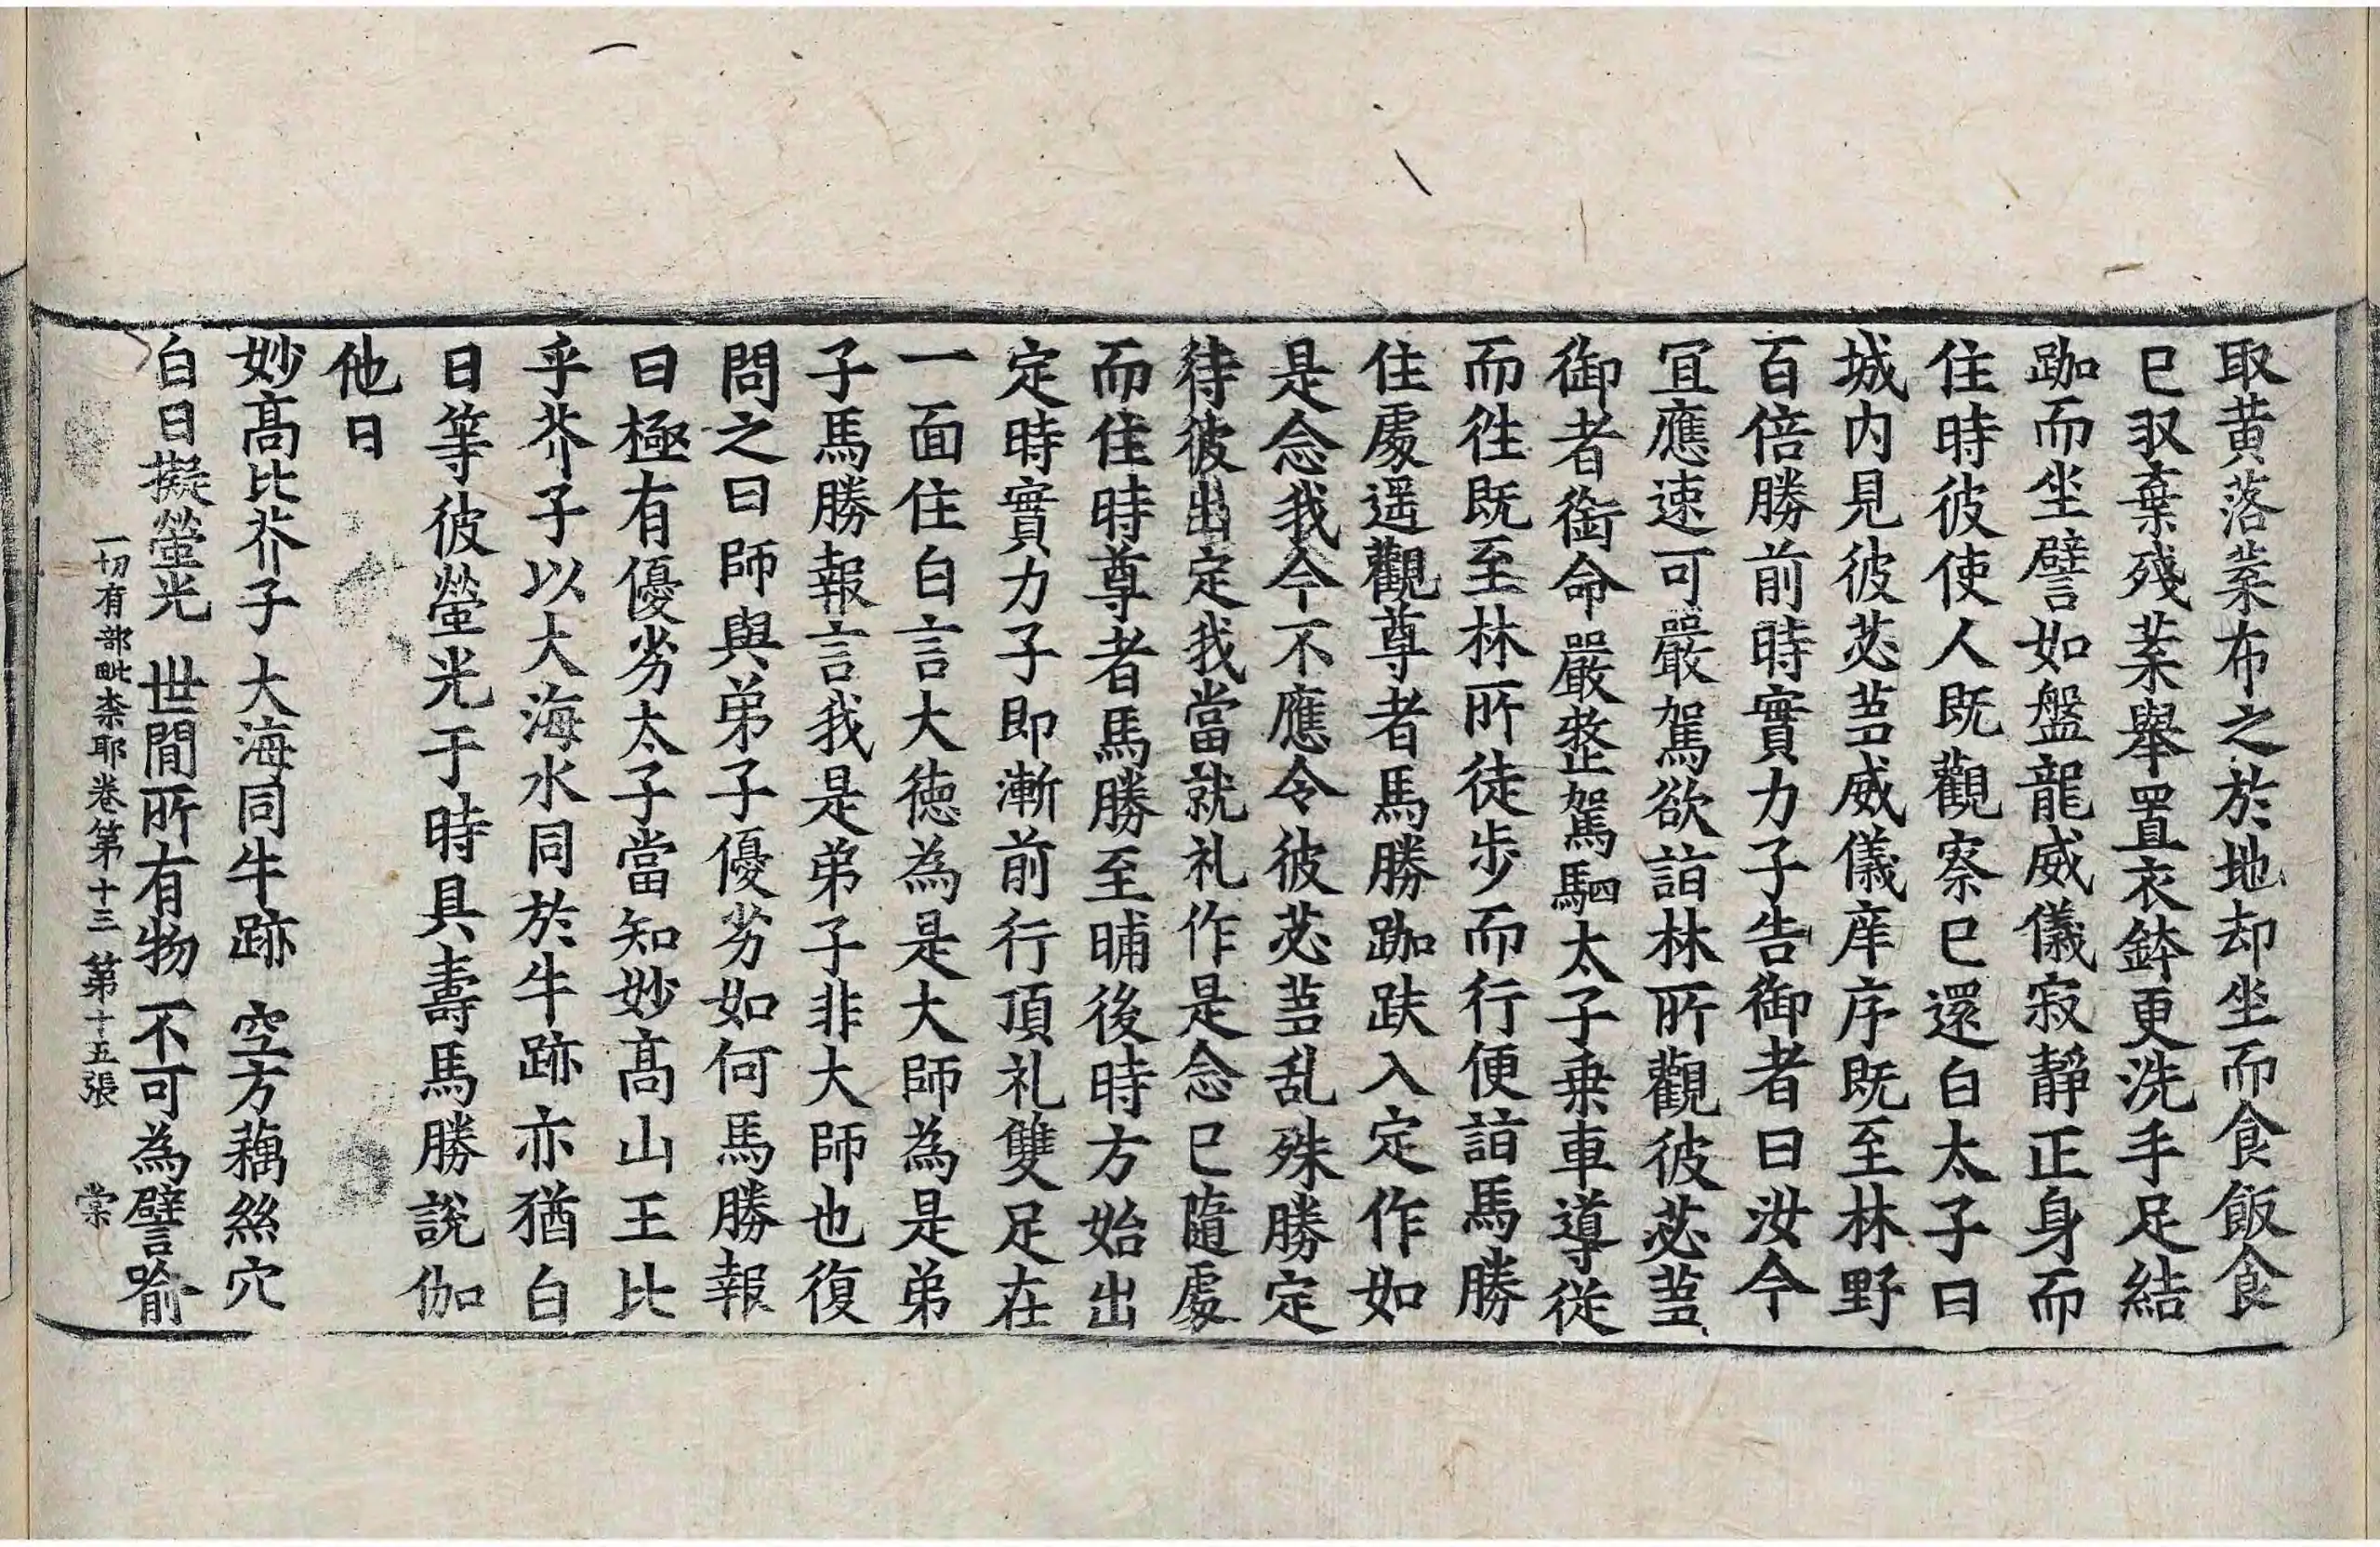 取黄落葉布之於地却坐而食飯食
已収棄殘葉舉置衣鉢更洗手足結
跏而坐譬如盤龍威儀寂靜正身而
住時彼使人既觀察已還白太子曰
城内見彼苾蒭威儀庠序既至林野
百倍勝前時實力子告御者曰汝今
冝應速可嚴駕欲詣林所觀彼苾蒭
御者銜命嚴整駕駟太子乗車導從
而徃既至林所徒步而行便詣馬勝
住處遥觀尊者馬勝跏趺入定作如
是念我今不應令彼苾蒭乱殊勝定
待彼出定我當就礼作是念已隨處
而住時尊者馬勝至晡後時方始出
定時實力子即漸前行頂礼雙足在
一面住白言大德為是大師為是弟
子馬勝報言我是弟子非大師也復
問之曰師與弟子優劣如何馬勝報
曰極有優劣太子當知妙髙山王比
乎芥子以大海水同於牛跡亦猶白
日等彼螢光于時具壽馬勝說伽
他曰
妙髙比芥子 大海同牛跡 空方藕絲穴
白日擬螢光 世間所有物 不可為譬喻
一切有部毗柰耶卷第十三 第十五張 棠